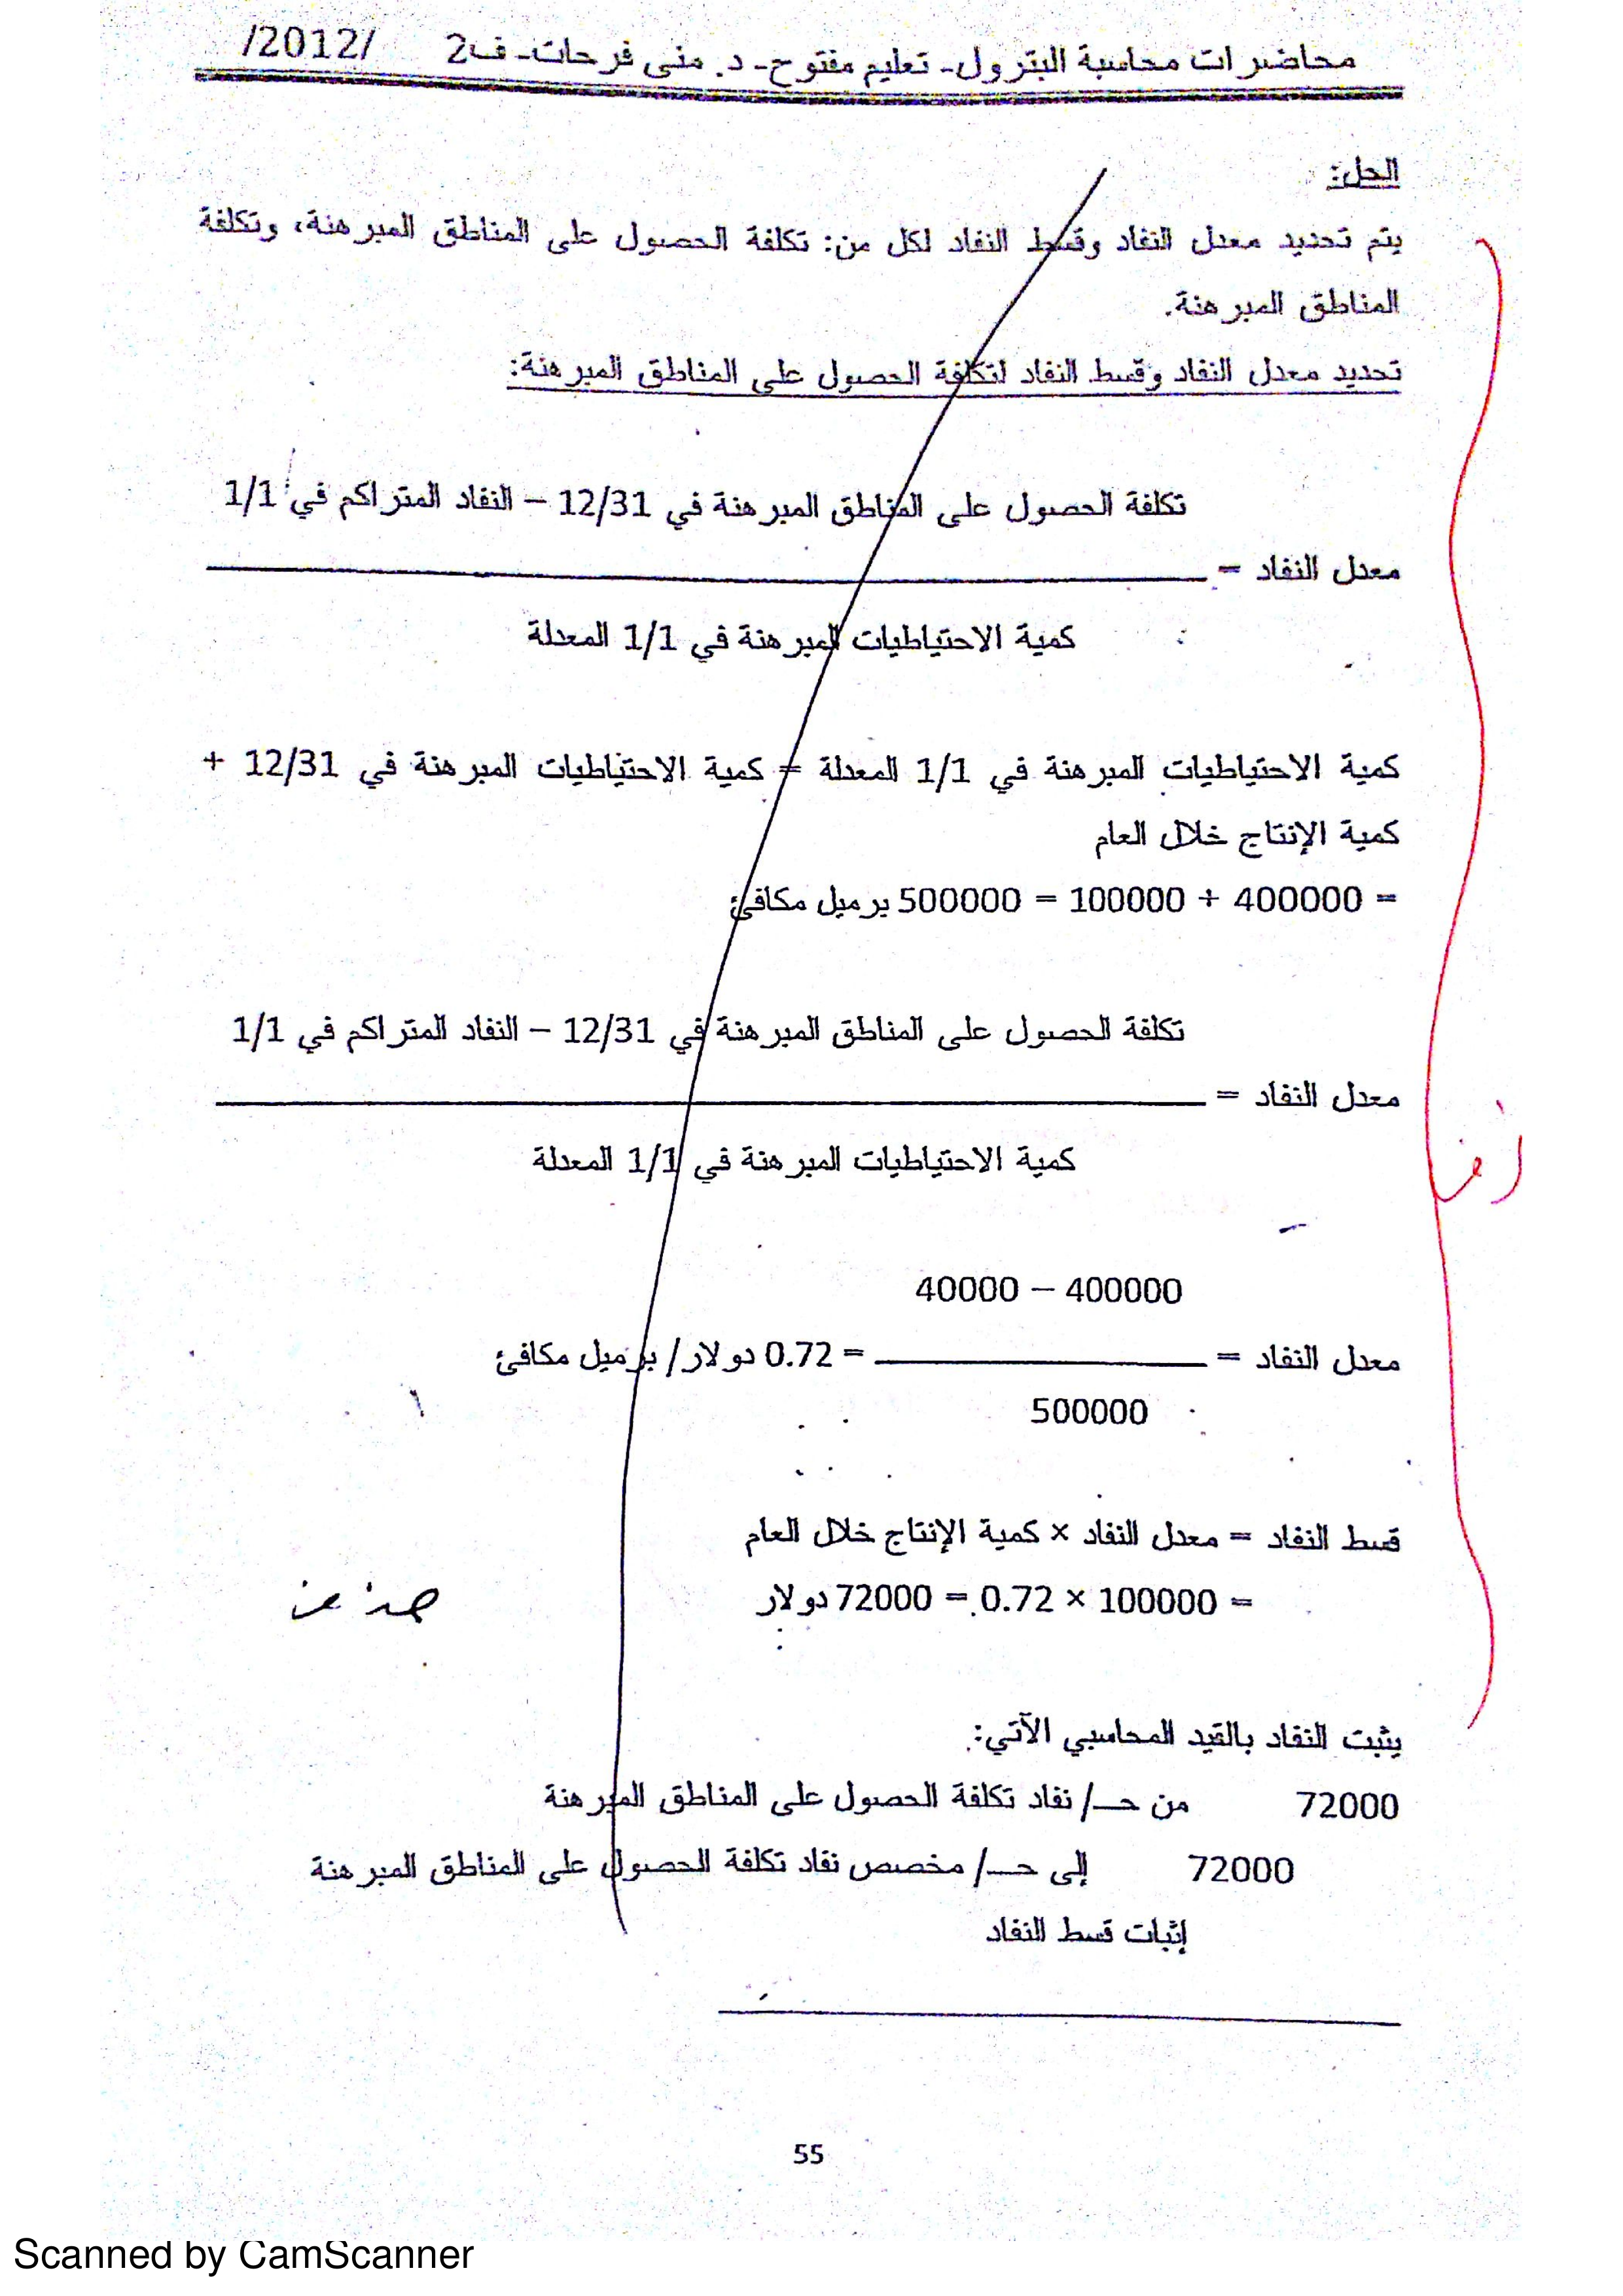 محاضرات محاسبة البترول- تعليم مفتوح- د. منى فرحات- ف2 /2012/
الحل:
يتم تحديد معدل النفاد وقسط النفاد لكل من: تكلفة الحصول على المناطق المبرهنة، وتكلفة
المناطق المبرهنة.
تحديد معدل النفاد وقسط النفاد لتكلفة الحصول على المناطق المبرهنة:
تكلفة الحصول على المناطق المبرهنة في 12/31 – النفاد المتراكم في 1/1
معدل النفاد =
كمية الاحتياطيات المبرهنة في 1/1 المعدلة
كمية الاحتياطيات المبرهنة في 1/1 المعدلة = كمية الاحتياطيات المبرهنة في 12/31 +
كمية الإنتاج خلال العام
= 400000 + 100000 = 500000 برميل مكافئ
تكلفة الحصول على المناطق المبرهنة في 12/31 – النفاد المتراكم في 1/1
معدل النفاد =
كمية الاحتياطيات المبرهنة في 1/1 المعدلة
400000 – 40000
معدل النفاد = = 0.72 دولار/ برميل مكافئ
500000
قسط النفاد = معدل النفاد × كمية الإنتاج خلال العام
= 100000 × 0.72 = 72000 دولار
يثبت النفاد بالقيد المحاسبي الآتي:
72000 من حـ/ نفاد تكلفة الحصول على المناطق المبرهنة
72000 إلى حـ/ مخصص نفاد تكلفة الحصول على المناطق المبرهنة
إثبات قسط النفاد
55
Scanned by CamScanner